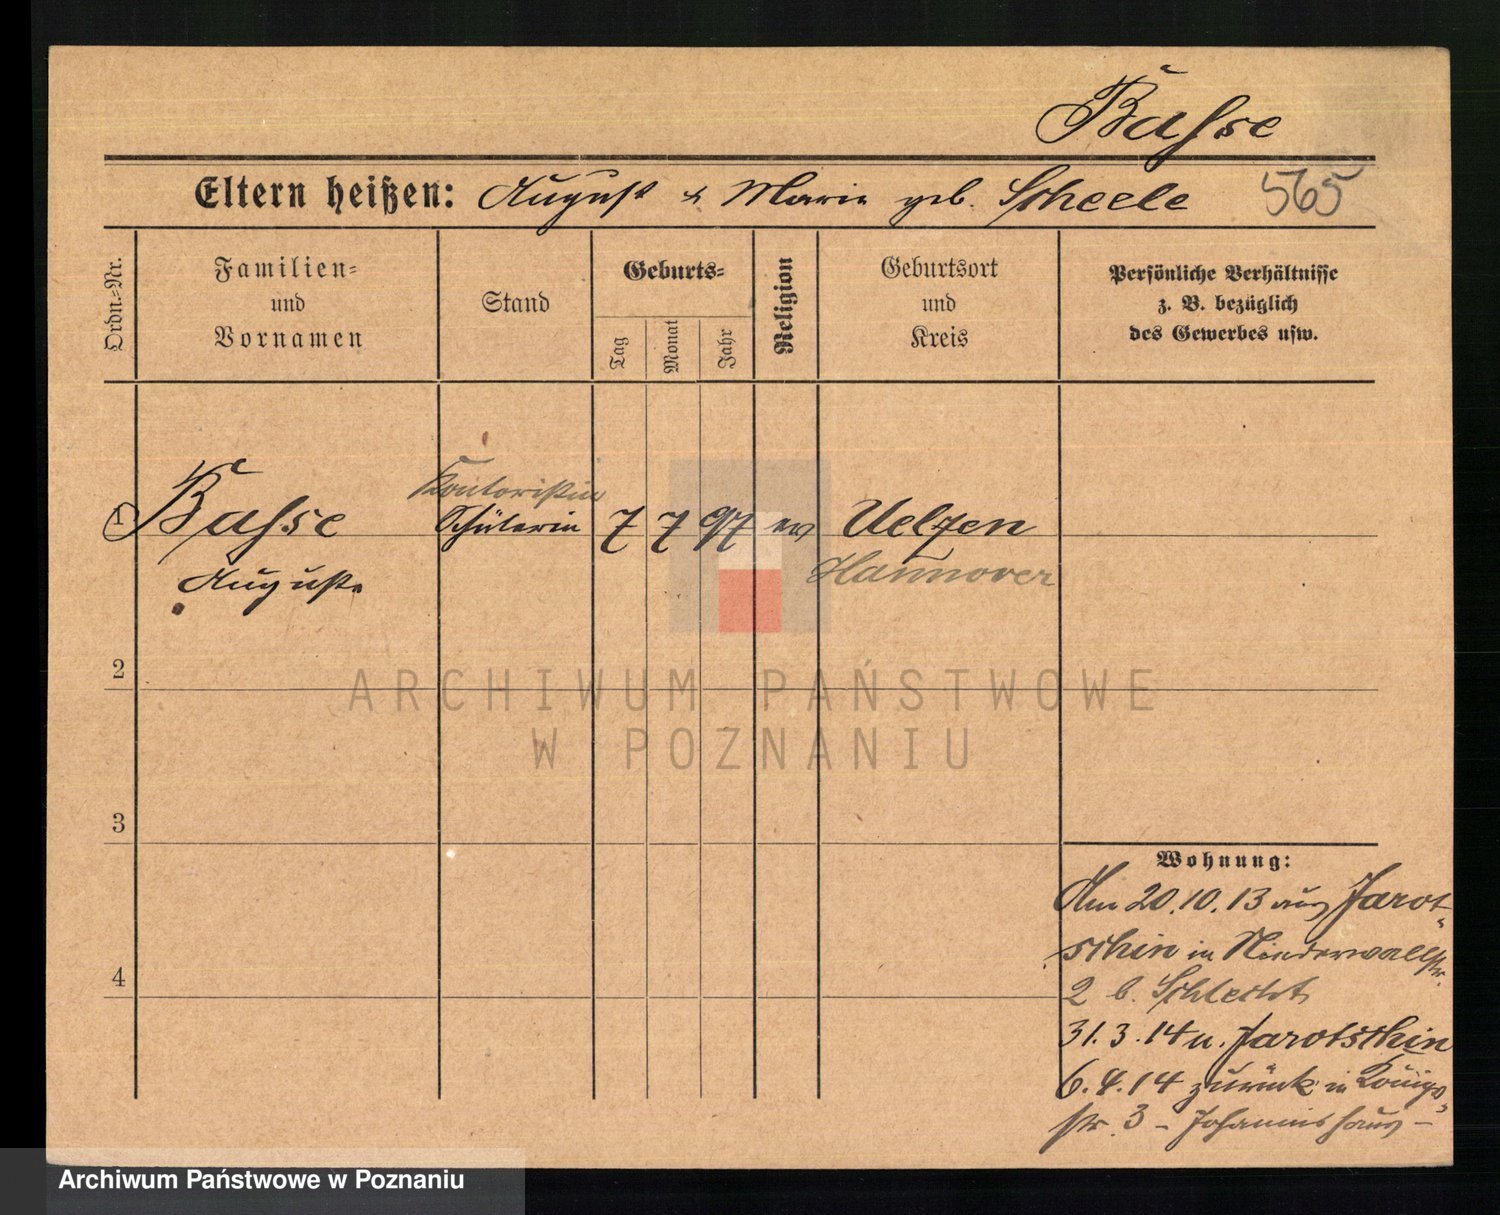 Basse
Eltern heißen: August & Marie geb. Scheele 565
Ordn.=Nr.
Familien=
und
Vornamen
Stand
Geburts=
Tag
Monat
Jahr
Religion
Geburtsort
und
Kreis
Persönliche Verhältnisse
z. B. bezüglich
des Gewerbes usw.
Kontoristin
1 Basse Schülerin 7 7 97 ev Uelzen
Auguste Hannover
2
ARCHIWUM PAŃSTWOWE
W POZNANIU
3
Wohnung:
Am 20.10.13 aus Jarot-
schin in Niederwallstr.
4
2 b. Schlecht
31.3.14 n. Jarotschin
6.4.14 zurück in Königs-
str. 3 - Johannishaus -
Archiwum Państwowe w Poznaniu